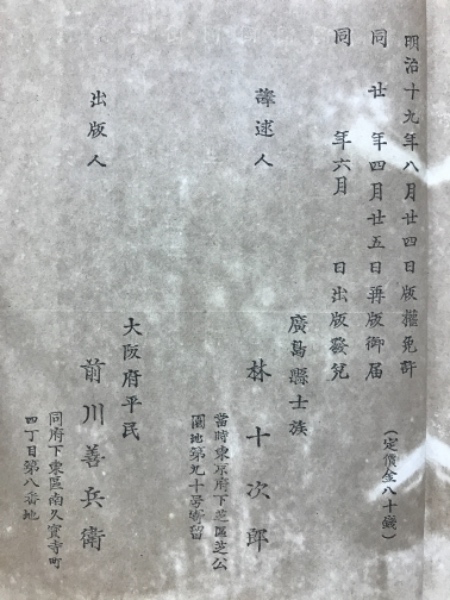 明治十九年八月廿四日版權免許
同　廿　年四月廿五日再版御届
同　　　年六月　　日出版發兌
（定價金八十錢）
廣島縣士族
譯述人　林十次郎
當時東京府下芝區芝公
園地第九十号寄留
大阪府平民
出版人　前川善兵衛
同府下東區南久寶寺町
四丁目第八番地